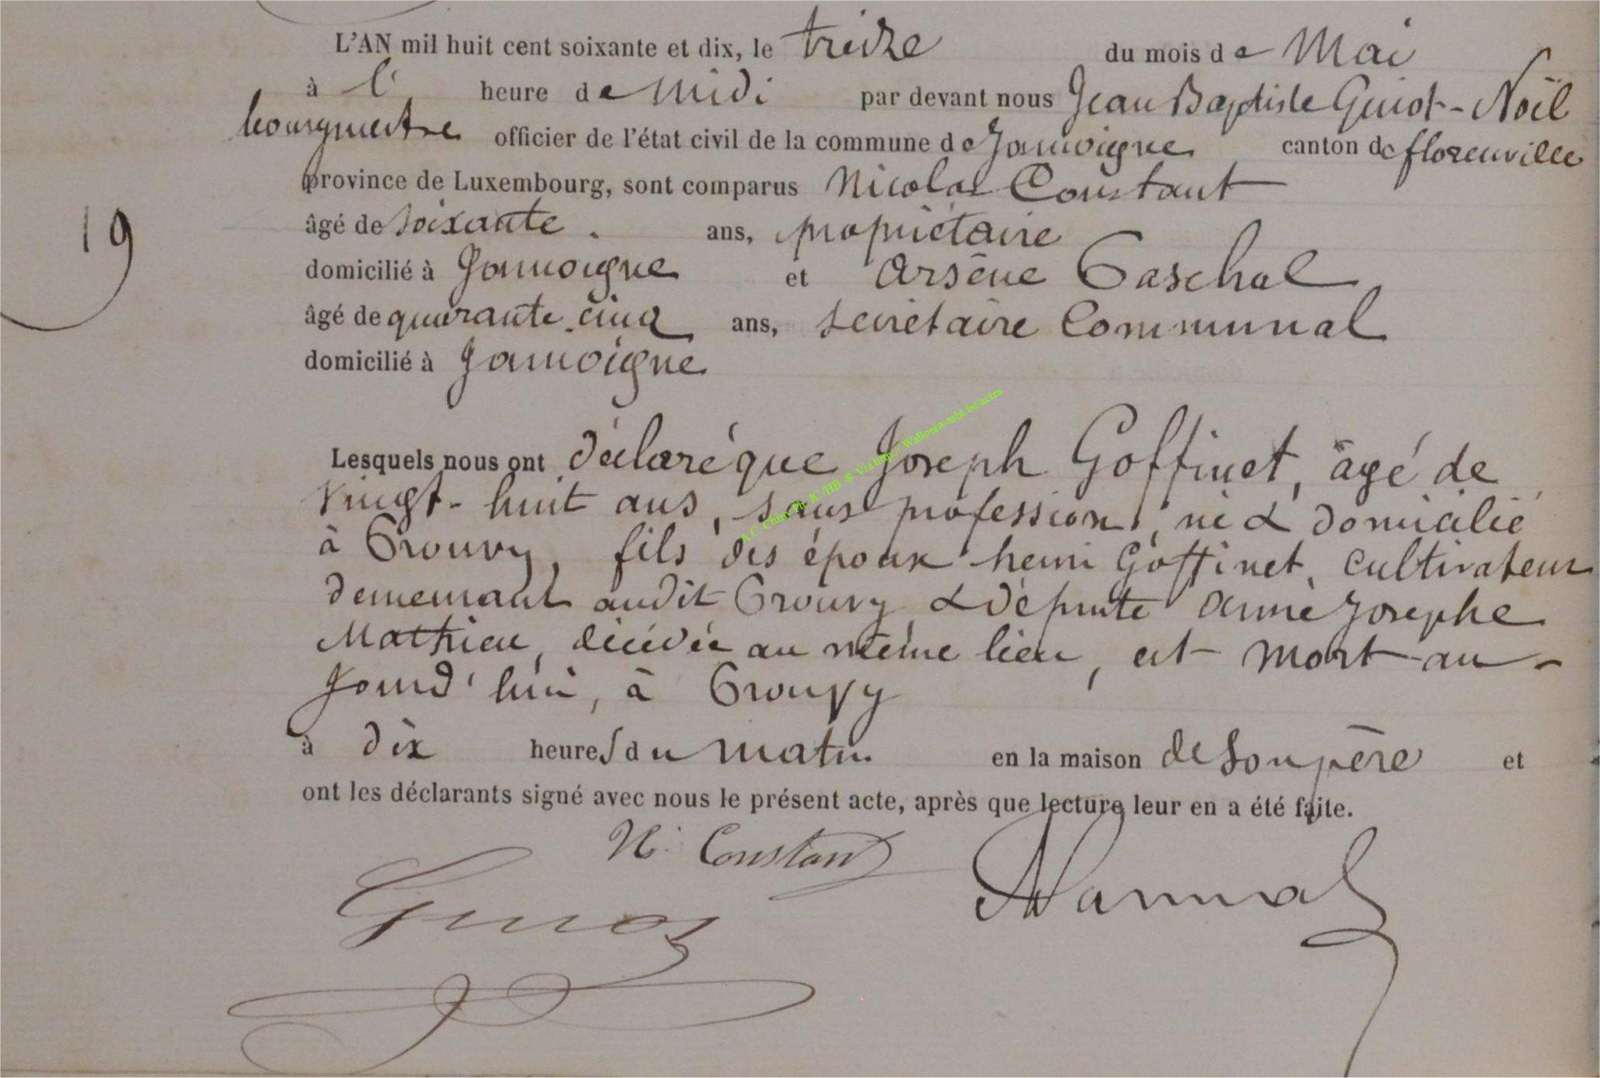 L'AN mil huit cent soixante et dix, le treize du mois de Mai
à l' heure de midi par devant nous Jean Baptiste Guiot-Noël
bourgmestre officier de l'état civil de la commune de Jamoigne canton de florenville
province de Luxembourg, sont comparus Nicolas Constant
19
âgé de soixante. ans, propriétaire
domicilié à Jamoigne et Arsène Paschal
âgé de quarante-cinq ans, secrétaire Communal
domicilié à Jamoigne
Lesquels nous ont déclaré que Joseph Goffinet, âgé de
vingt-huit ans, sans profession, né & domicilié
à Prouvy, fils des époux henri Goffinet, cultivateur
demeurant audit Prouvy & défunte anne Josephe
Mathieu, décédée au même lieu, est mort au-
jourd'hui, à Prouvy
à dix heures du matin en la maison de son père et
ont les déclarants signé avec nous le présent acte, après que lecture leur en a été faite.
N. Constant
Guiot